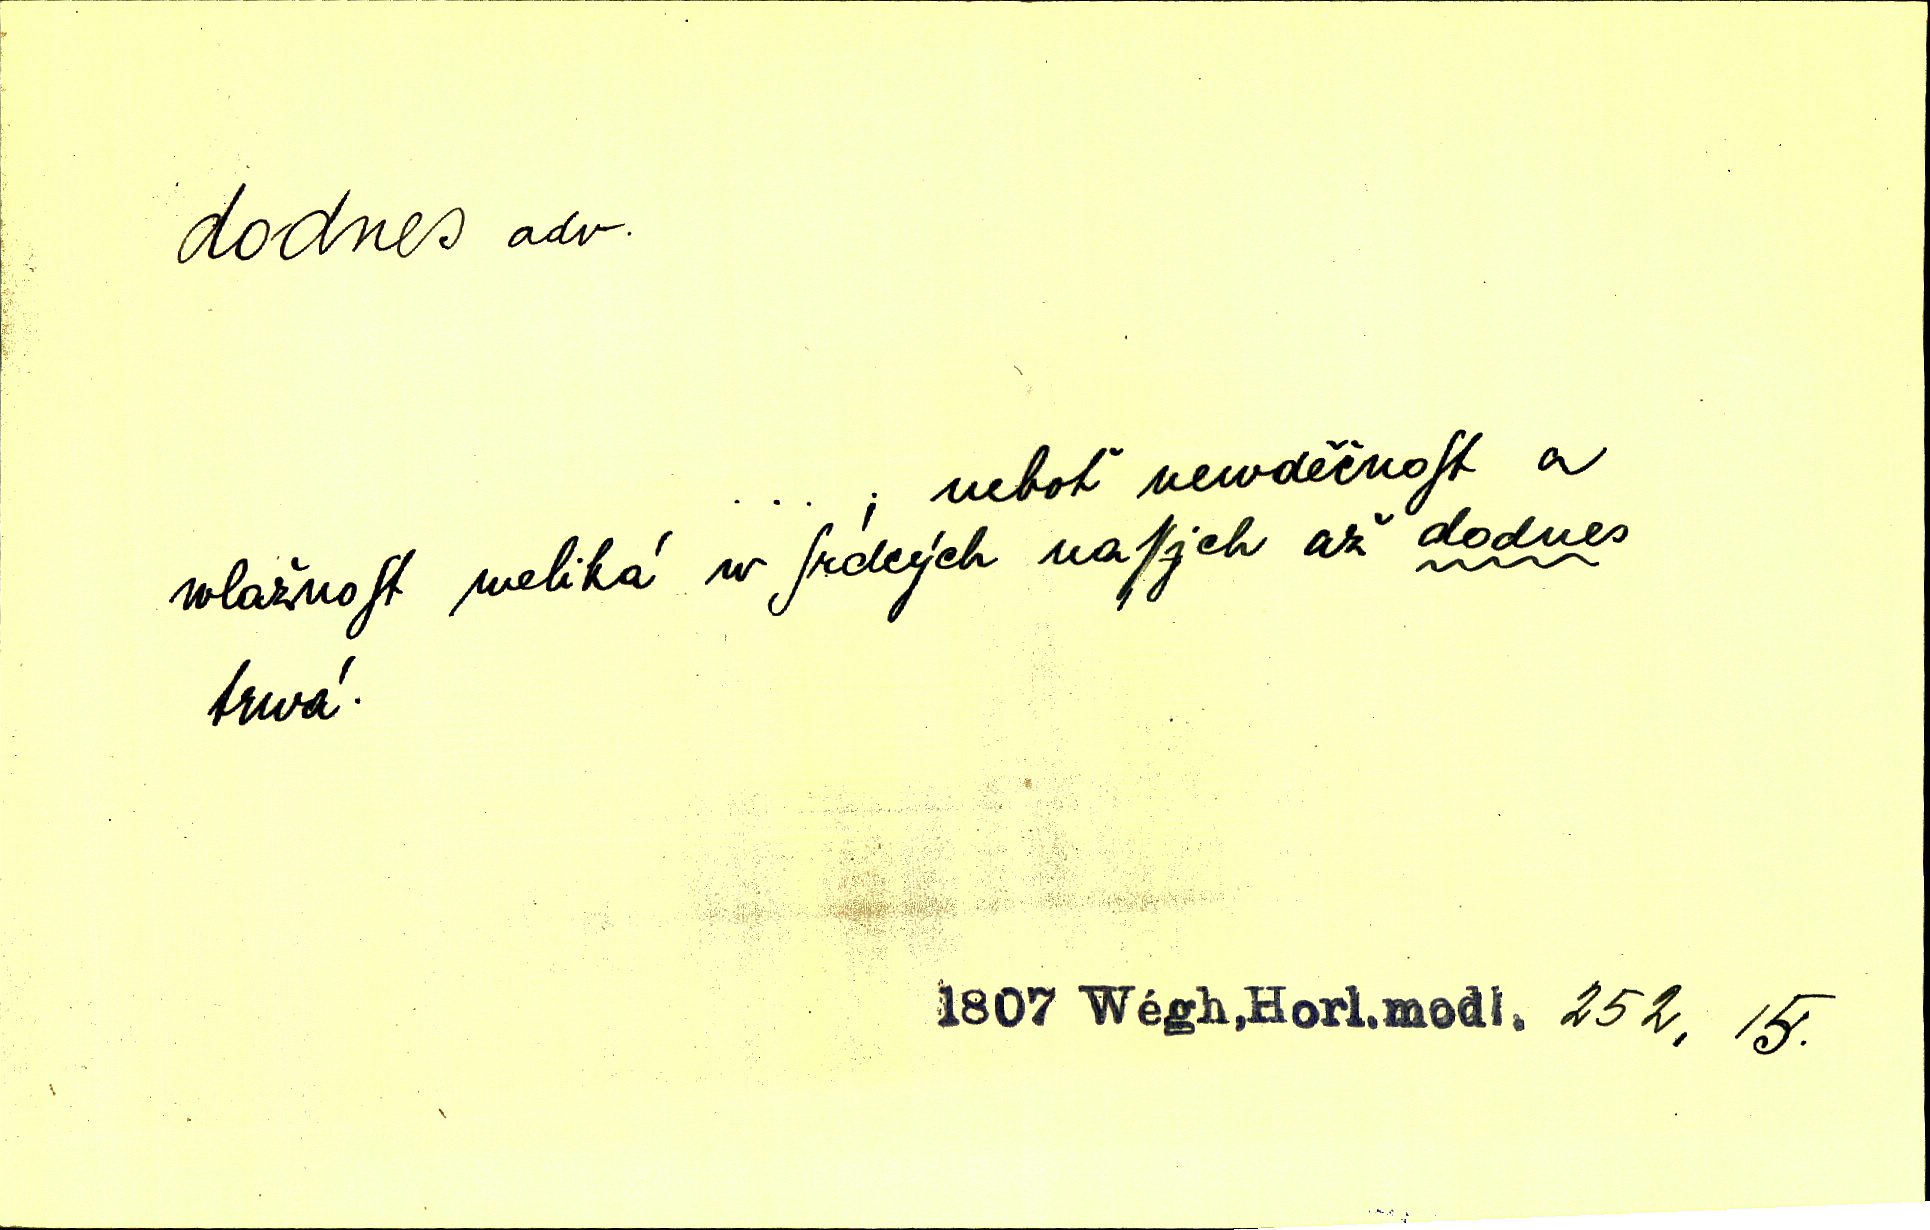 dodnes adv.
... ; neboť newděčnoſt a
wlažnoſt weliká w ſrdcých naſſjch až dodnes
trwá.
1807 Wégh,Horl.modl. 252, 15.